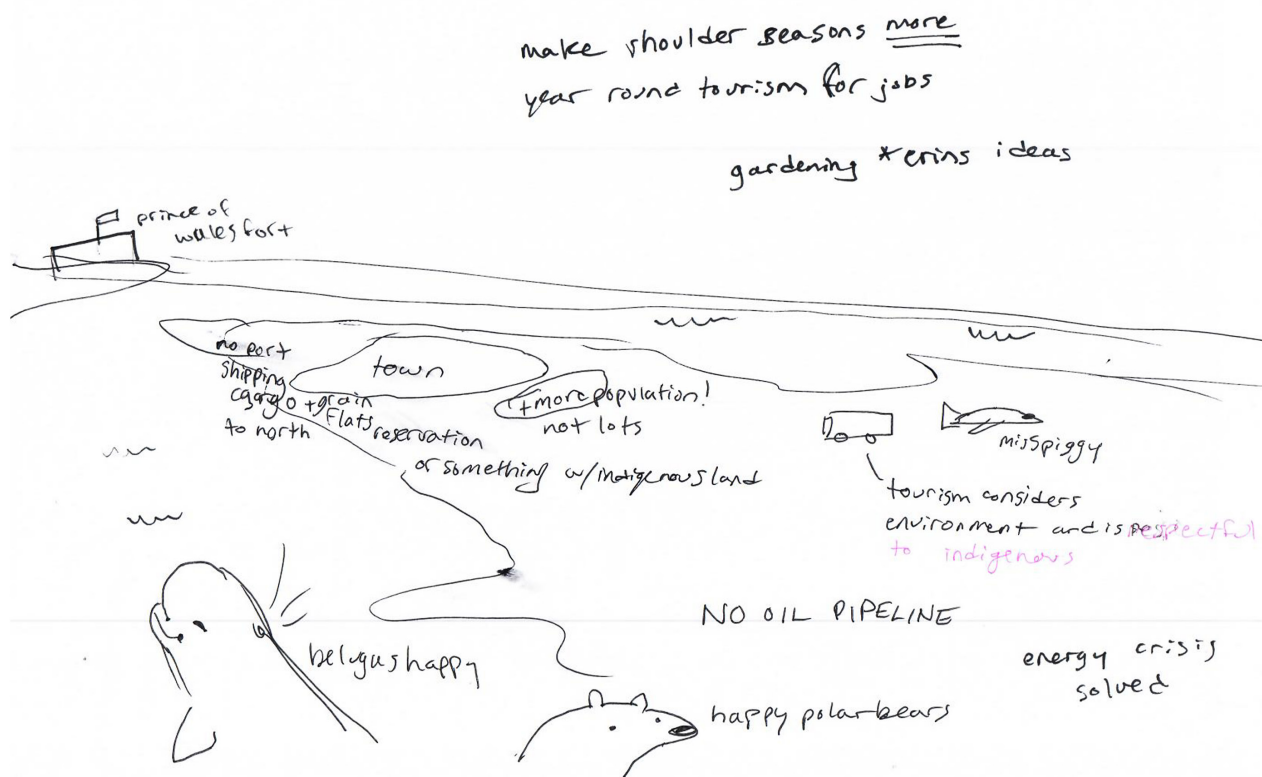 make shoulder seasons more
year round tourism for jobs
gardening *erins ideas
prince of
wales fort
no port
shipping
cargo + grain
to north
town
Flats reservation
or something w/indigenous land
+more population!
not lots
miss piggy
tourism considers
environment and is respectful
to indigenous
NO OIL PIPELINE
energy crisis
solved
belugas happy
happy polar bears